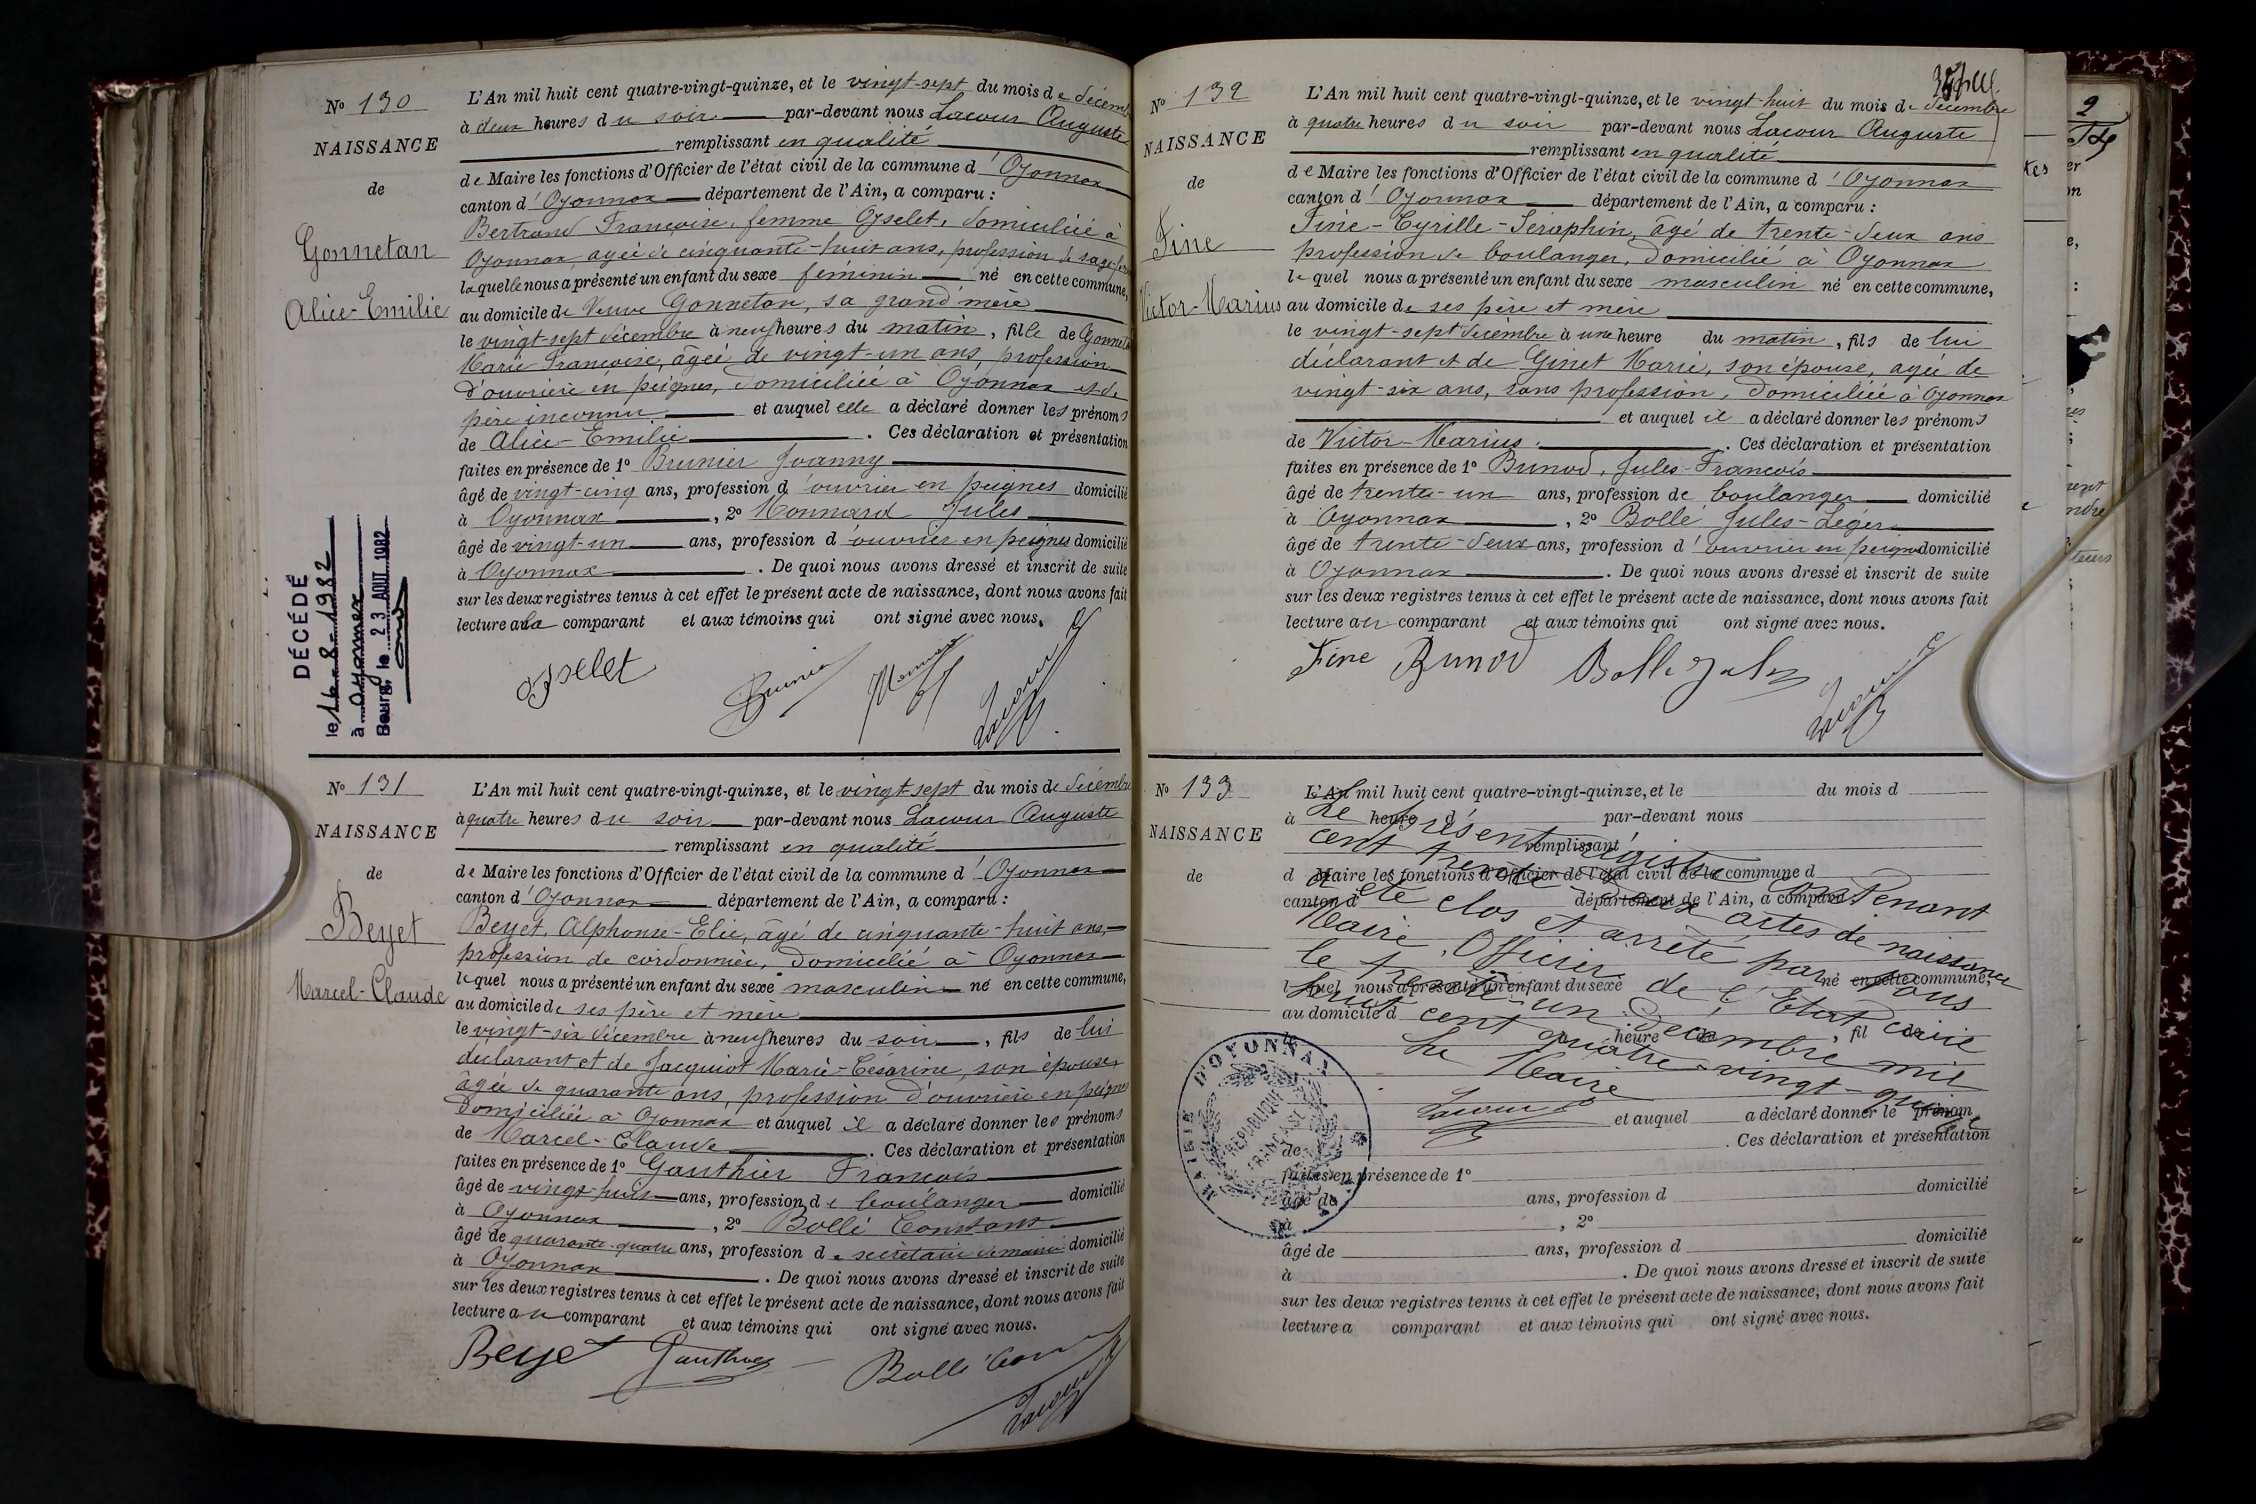 N° 130
NAISSANCE
de
Gonnetan
Alice-Emilie
DÉCÉDÉ
le 16-8-1982
à Oyonnax
Bourg, le 23 AOUT 1982
L'An mil huit cent quatre-vingt-quinze, et le vingt-sept du mois de décemb
à deux heures du soir par-devant nous Lacour Auguste
remplissant en qualité
de Maire les fonctions d'Officier de l'état civil de la commune d'Oyonnax
canton d'Oyonnax département de l'Ain, a comparu :
Bertrand Françoise, femme Oyselet, domiciliée à
Oyonnax agée de cinquante-huit ans, profession de sage-fem
laquelle nous a présenté un enfant du sexe féminin né en cette commune,
au domicile de Veuve Gonnetan, sa grand'mère
le vingt-sept décembre à neuf heures du matin, fille de Gonneta
Marie Françoise, âgée de vingt-un ans, profession
d'ouvrière en peignes, domiciliée à Oyonnax et de
père inconnu et auquel elle a déclaré donner les prénoms
de Alice-Emilie. Ces déclaration et présentation
faites en présence de 1° Brunier Joanny
âgé de vingt-cinq ans, profession d'ouvrier en peignes domicilié
à Oyonnax, 2° Monnard Jules
âgé de vingt-un ans, profession d'ouvrier en peignes domicilié
à Oyonnax. De quoi nous avons dressé et inscrit de suite
sur les deux registres tenus à cet effet le présent acte de naissance, dont nous avons fait
lecture à la comparant et aux témoins qui ont signé avec nous.
Oyselet Brunier Monnard Lacour
N° 131
NAISSANCE
de
Beyet
Marcel-Claude
L'An mil huit cent quatre-vingt-quinze, et le vingt-sept du mois de décembre
à quatre heures du soir par-devant nous Lacour Auguste
remplissant en qualité
de Maire les fonctions d'Officier de l'état civil de la commune d'Oyonnax
canton d'Oyonnax département de l'Ain, a comparu :
Beyet, Alphonse-Elie, âgé de cinquante-huit ans,
profession de cordonnier, domicilié à Oyonnax
lequel nous a présenté un enfant du sexe masculin né en cette commune,
au domicile de ses père et mère
le vingt-six décembre à neuf heures du soir, fils de lui
déclarant et de Jacquiot Marie-Césarine, son épouse
âgée de quarante ans, profession d'ouvrière en peignes
domiciliée à Oyonnax et auquel il a déclaré donner les prénoms
de Marcel-Claude. Ces déclaration et présentation
faites en présence de 1° Gauthier François
âgé de vingt-huit ans, profession de boulanger domicilié
à Oyonnax, 2° Bollé Constant
âgé de quarante-quatre ans, profession de secrétaire de mairie domicilié
à Oyonnax. De quoi nous avons dressé et inscrit de suite
sur les deux registres tenus à cet effet le présent acte de naissance, dont nous avons fait
lecture au comparant et aux témoins qui ont signé avec nous.
Beyet Gauthier Bollé Con Lacour
N° 132
NAISSANCE
de
Fine
Victor-Marius
L'An mil huit cent quatre-vingt-quinze, et le vingt-huit du mois de décembre
à quatre heures du soir par-devant nous Lacour Auguste
remplissant en qualité
de Maire les fonctions d'Officier de l'état civil de la commune d'Oyonnax
canton d'Oyonnax département de l'Ain, a comparu :
Fine-Cyrille-Séraphin, âgé de trente-deux ans
profession de boulanger, domicilié à Oyonnax
lequel nous a présenté un enfant du sexe masculin né en cette commune,
au domicile de ses père et mère
le vingt-sept décembre à une heure du matin, fils de lui
déclarant et de Ginet Marie, son épouse, agée de
vingt-six ans, sans profession, domiciliée à Oyonnax
et auquel il a déclaré donner les prénoms
de Victor-Marius. Ces déclaration et présentation
faites en présence de 1° Bunod, Jules-François
âgé de trente-un ans, profession de boulanger domicilié
à Oyonnax, 2° Bollé Jules-Léger
âgé de trente-deux ans, profession d'ouvrier en peignes domicilié
à Oyonnax. De quoi nous avons dressé et inscrit de suite
sur les deux registres tenus à cet effet le présent acte de naissance, dont nous avons fait
lecture au comparant et aux témoins qui ont signé avec nous.
Fine Bunod Bollé Jules Lacour
N° 133
NAISSANCE
de
L'An mil huit cent quatre-vingt-quinze, et le du mois d
à heure d par-devant nous
remplissant
d Maire les fonctions d'Officier de l'état civil de la commune d
canton d département de l'Ain, a comparu
l quel nous a présenté un enfant du sexe né en cette commune,
au domicile d
le heure du, fil de
et auquel a déclaré donner le prénom
de. Ces déclaration et présentation
faites en présence de 1°
âgé de ans, profession d domicilié
à, 2°
âgé de ans, profession d domicilié
à. De quoi nous avons dressé et inscrit de suite
sur les deux registres tenus à cet effet le présent acte de naissance, dont nous avons fait
lecture a comparant et aux témoins qui ont signé avec nous.
Le présent registre contenant
cent trente-deux actes de naissance
a été clos et arrêté par nous
Maire, Officier de l'Etat civil
le trente-un décembre mil
huit cent quatre-vingt-quinze
Le Maire
Lacour
MAIRIE D'OYONNAX
RÉPUBLIQUE FRANÇAISE